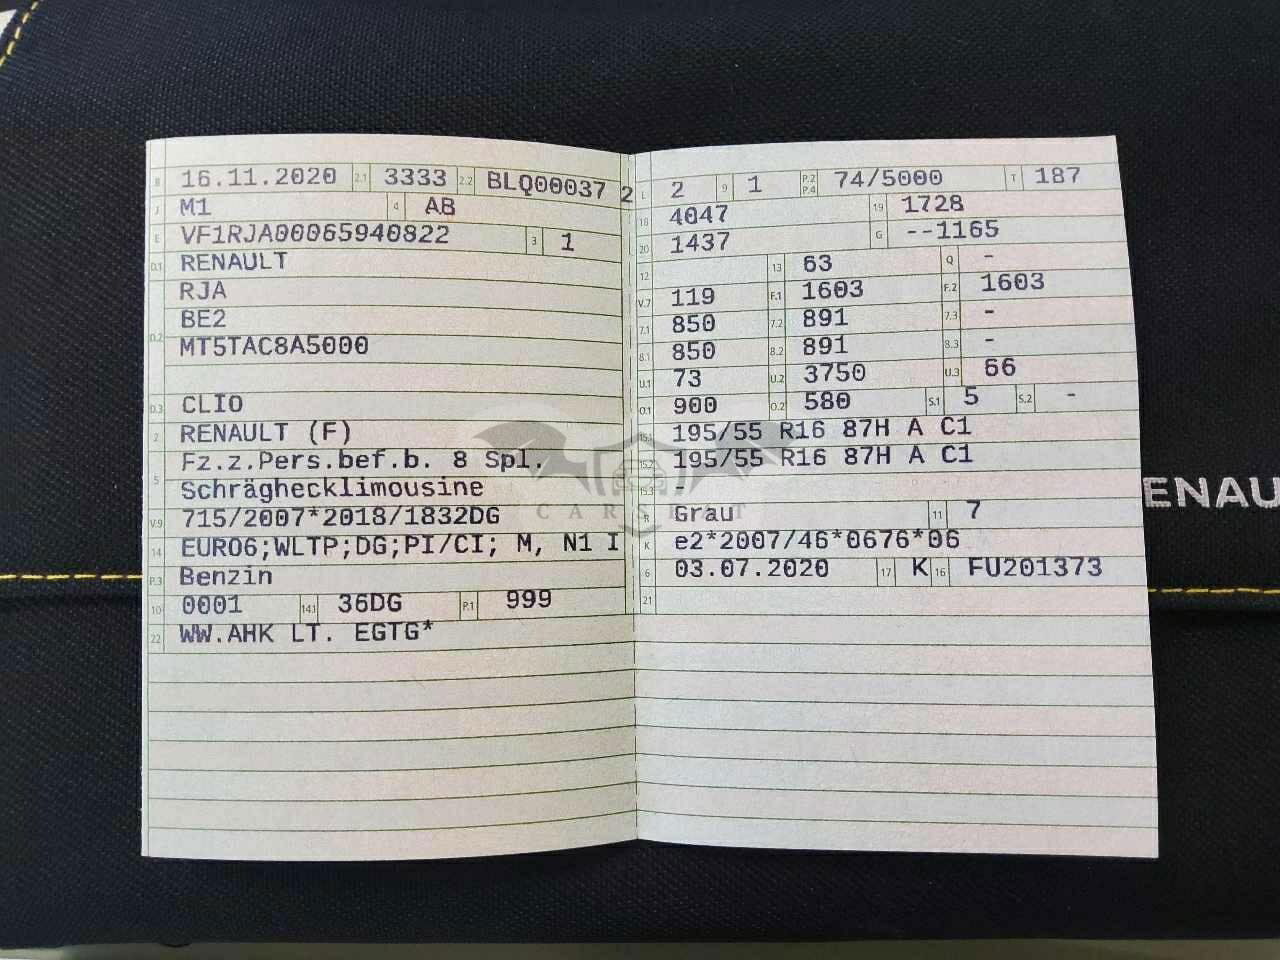 B 16.11.2020 2.1 3333 2.2 BLQ00037 2
J M1 4 AB
E VF1RJA00065940822 3 1
D.1 RENAULT
RJA
D.2 BE2
MT5TAC8A5000
D.3 CLIO
2 RENAULT (F)
5 Fz.z.Pers.bef.b. 8 Spl.
Schräghecklimousine
V.9 715/2007*2018/1832DG
14 EURO6;WLTP;DG;PI/CI; M, N1 I
P.3 Benzin
10 0001 14.1 36DG P.1 999
22 WW.AHK LT. EGTG*
L 2 9 1 P.2 P.4 74/5000 T 187
18 4047 19 1728
20 1437 G --1165
12 13 63 Q -
V.7 119 F.1 1603 F.2 1603
7.1 850 7.2 891 7.3 -
8.1 850 8.2 891 8.3 -
U.1 73 U.2 3750 U.3 66
O.1 900 O.2 580 S.1 5 S.2 -
15.1 195/55 R16 87H A C1
15.2 195/55 R16 87H A C1
15.3 -
R Grau 11 7
K e2*2007/46*0676*06
6 03.07.2020 17 K 16 FU201373
21
CARS
ENAU